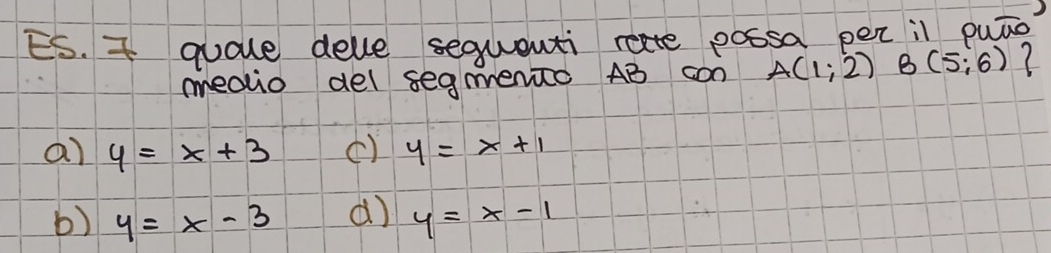 ES. 7 quale delle seguenti rette passa per il punto
medio del segmento AB con A(1;2) B(5;6)?
a) y = x + 3 c) y = x + 1
b) y = x - 3 d) y = x - 1